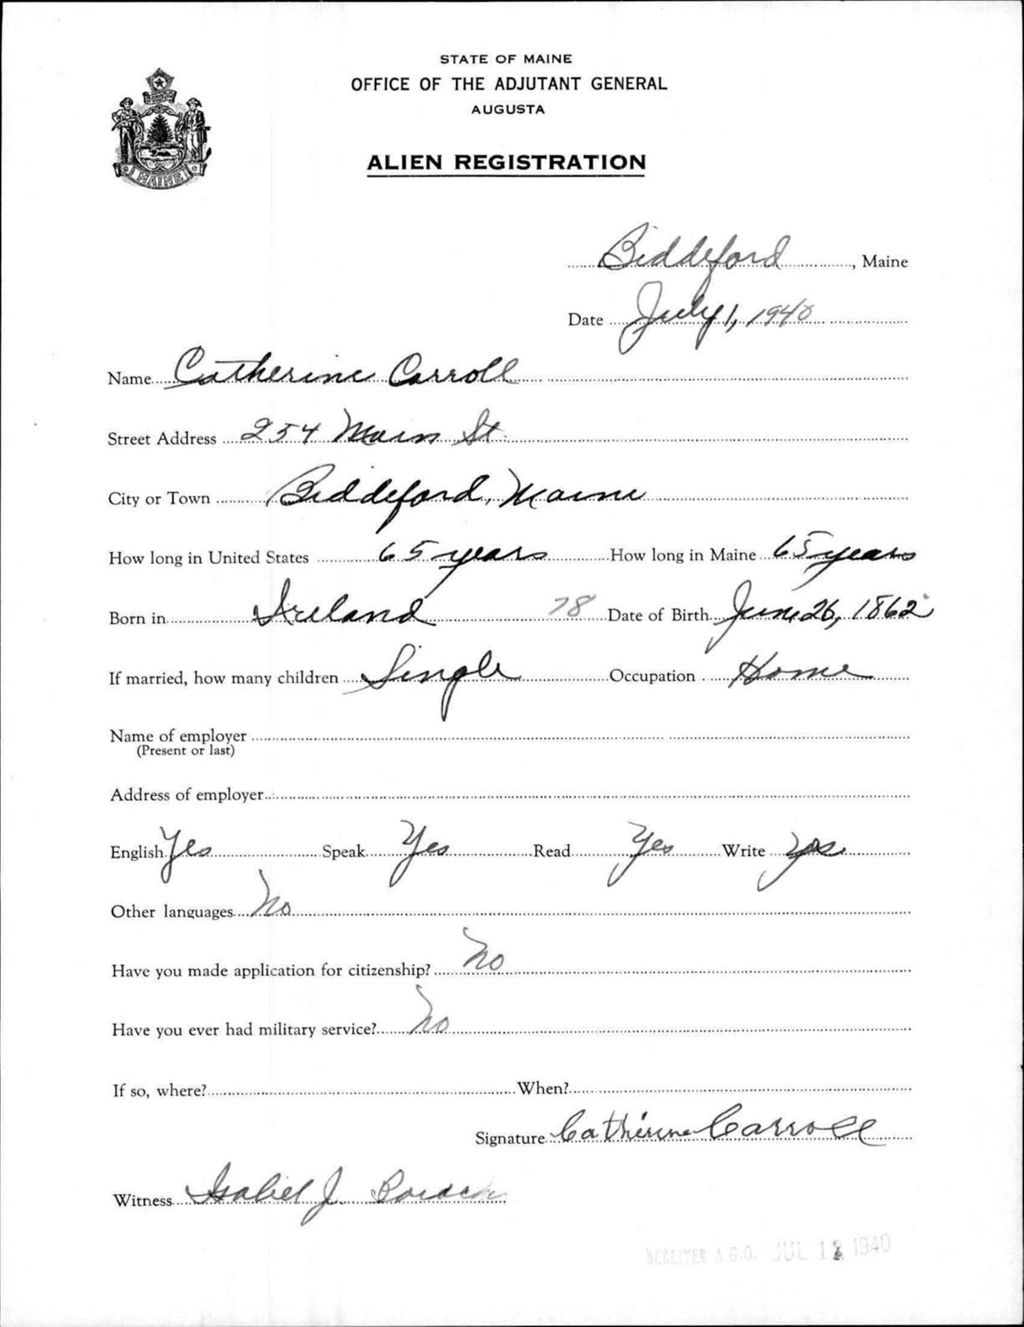 STATE OF MAINE
OFFICE OF THE ADJUTANT GENERAL
AUGUSTA
ALIEN REGISTRATION
MAINE
Biddeford, Maine
Date July 1, 1940
Name Catherine Carroll
Street Address 254 Main St.
City or Town Biddeford, Maine
How long in United States 65 years How long in Maine 65 years
Born in Ireland 78 Date of Birth June 26, 1862
If married, how many children Single Occupation Home
Name of employer
(Present or last)
Address of employer
English Yes Speak Yes Read Yes Write Yes
Other languages No
Have you made application for citizenship? No
Have you ever had military service? No
If so, where? When?
Signature Catherine Carroll
Witness Isabel J.
RECEIVED A.G.O. JUL 12 1940